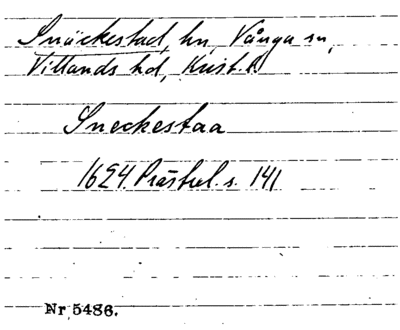 Snäckestad, hn, Vånga sn,
Villands hd, Krist. l.
Sneckestaa
1624 Prästrel. s. 141
Nr 5486.